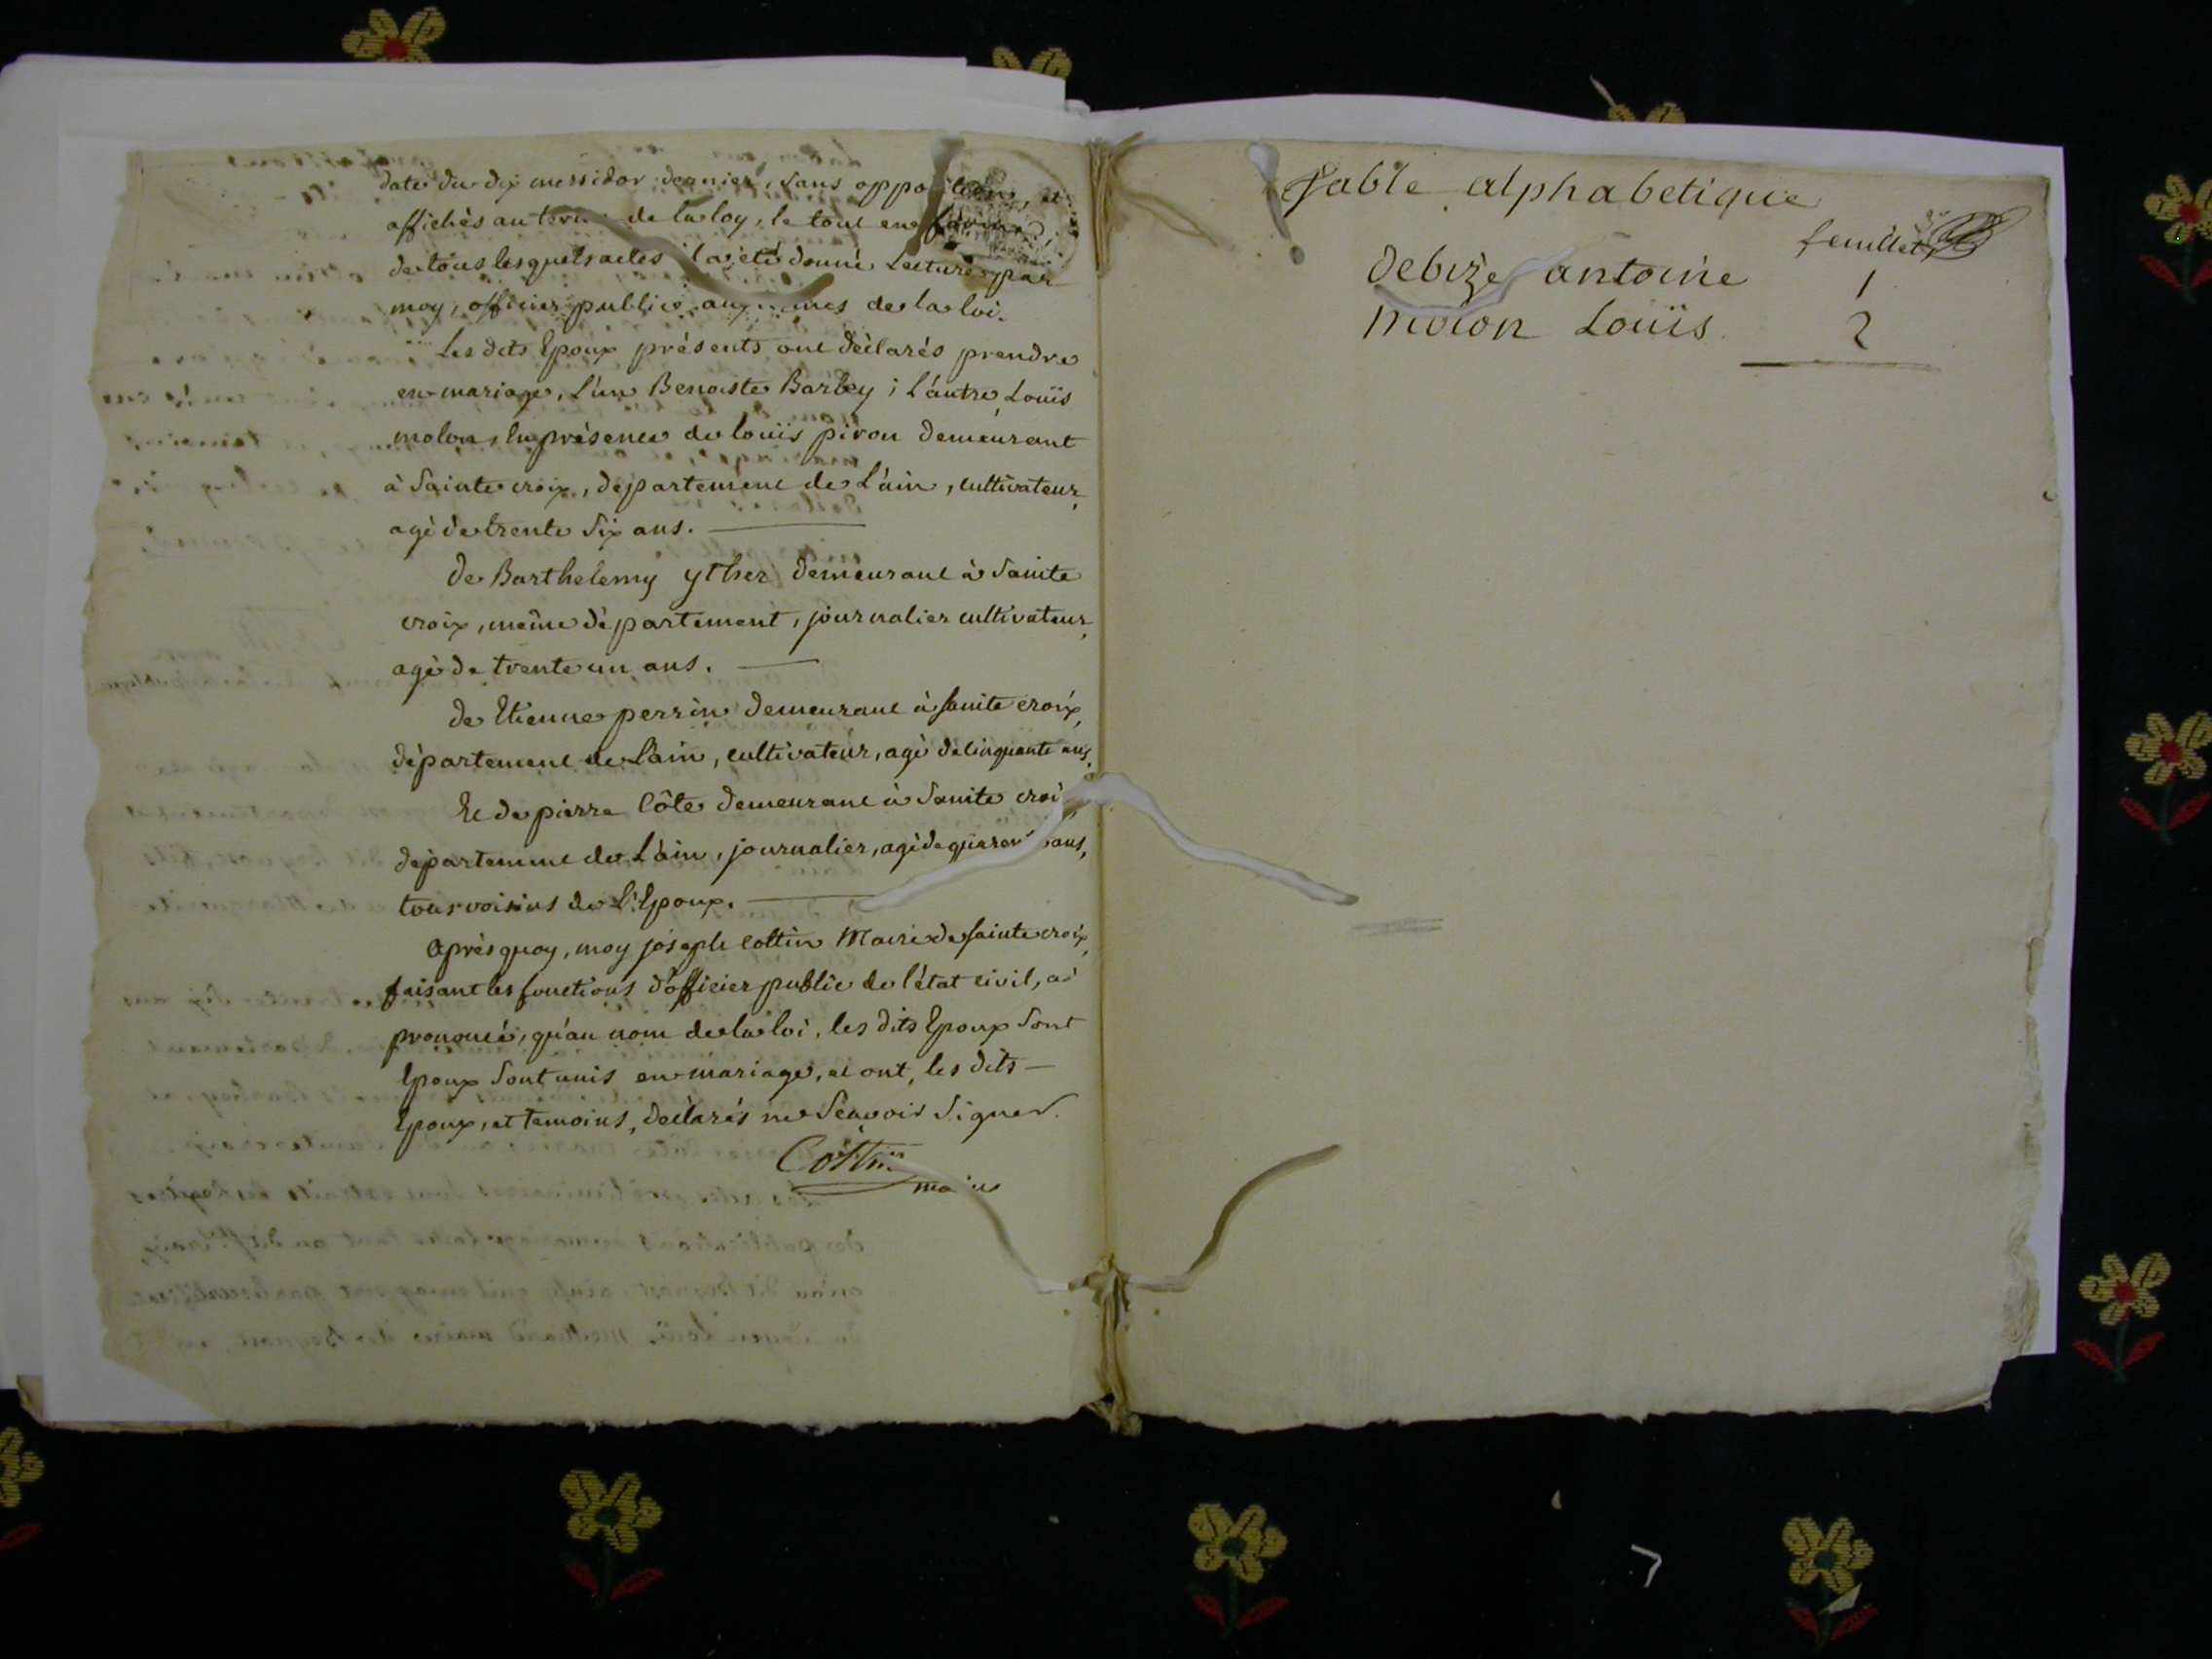 date du dix messidor dernier, sans opposition, et
affichés au terme de la loy, le tout en forme,
de tous lesquels actes il a été donné Lecture par
moy, officier public, aux termes de la loi.
Les dits Epoux présents ont déclarés prendre
en mariage, L'un Benoiste Barbey; L'autre Louïs
molon, En présence de louïs piron demeurant
à Sainte croix, département de L'ain, cultivateur,
agé de trente Six ans.
de Barthelemy yther demeurant à Sainte
croix, même département, journalier cultivateur,
agé de trente un ans.
de Etienne perrin demeurant à Sainte croix,
département de L'ain, cultivateur, agé de cinquante ans,
Et de pierre Côte demeurant à Sainte croix
département de L'ain, journalier, agé de quarante ans,
tous voisins de L'Epoux.
Après quoy, moy joseph cottin Maire de Sainte croix,
faisant les fonctions d'officier public de l'état civil, ai
prononcé, qu'au nom de la loi, les dits Epoux Sont
Epoux Sont unis en mariage, et ont, les dits
Epoux, et temoins, déclarés ne Scavoir Signer.
Cottin
maire
Table alphabetique
feuillet
debize antoine 1
molon Louïs 2